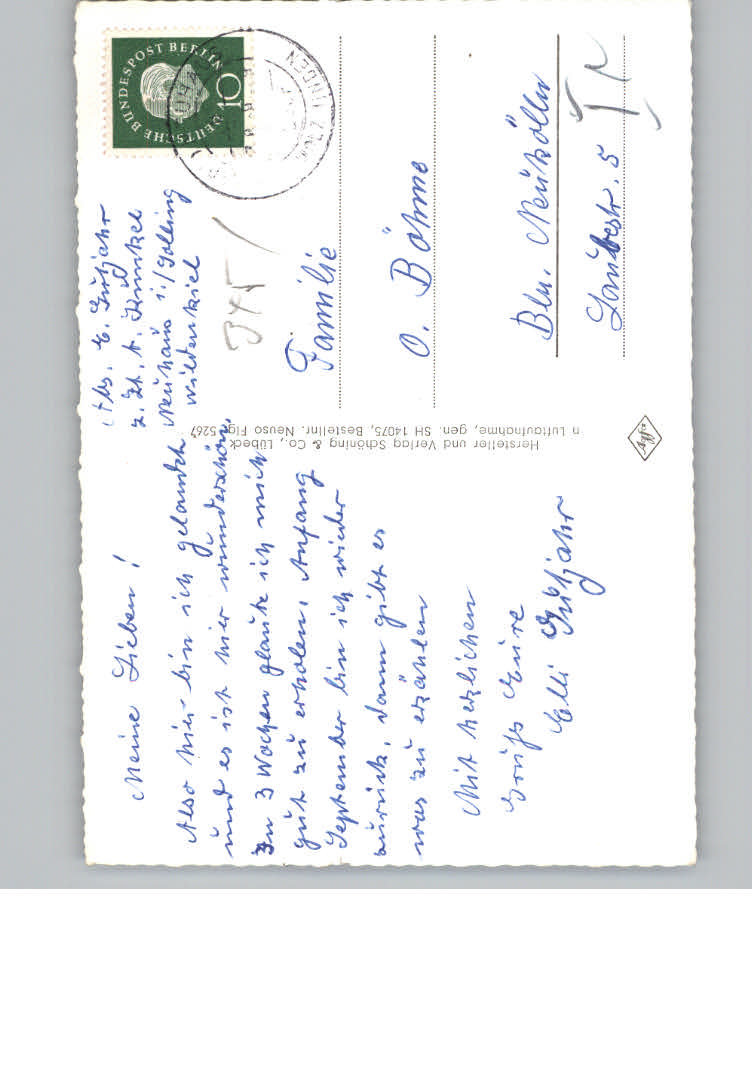 Meine Lieben!
Also hier bin ich gelandet
und es ist hier wunderschön,
In 3 Wochen glaube ich mich
gut zu erholen, Anfang
September bin ich wieder
zurück, dann gibt es
was zu erzählen
Mit herzlichen
Grüßs Eure
Elli Gutjahr
Abs. E. Gutjahr
z. Zt. A. Künkel
Neuhaus i./Solling
Wildenkiel
DEUTSCHE BUNDESPOST BERLIN
10
345
Familie
O. Böhme
Bln. Neukölln
Laubestr. 5
IV
Hersteller und Verlag Schöning & Co., Lübeck
n Luftaufnahme, gen. SH 14075, Bestellnr. Neuso Flg. 5267
Agfa